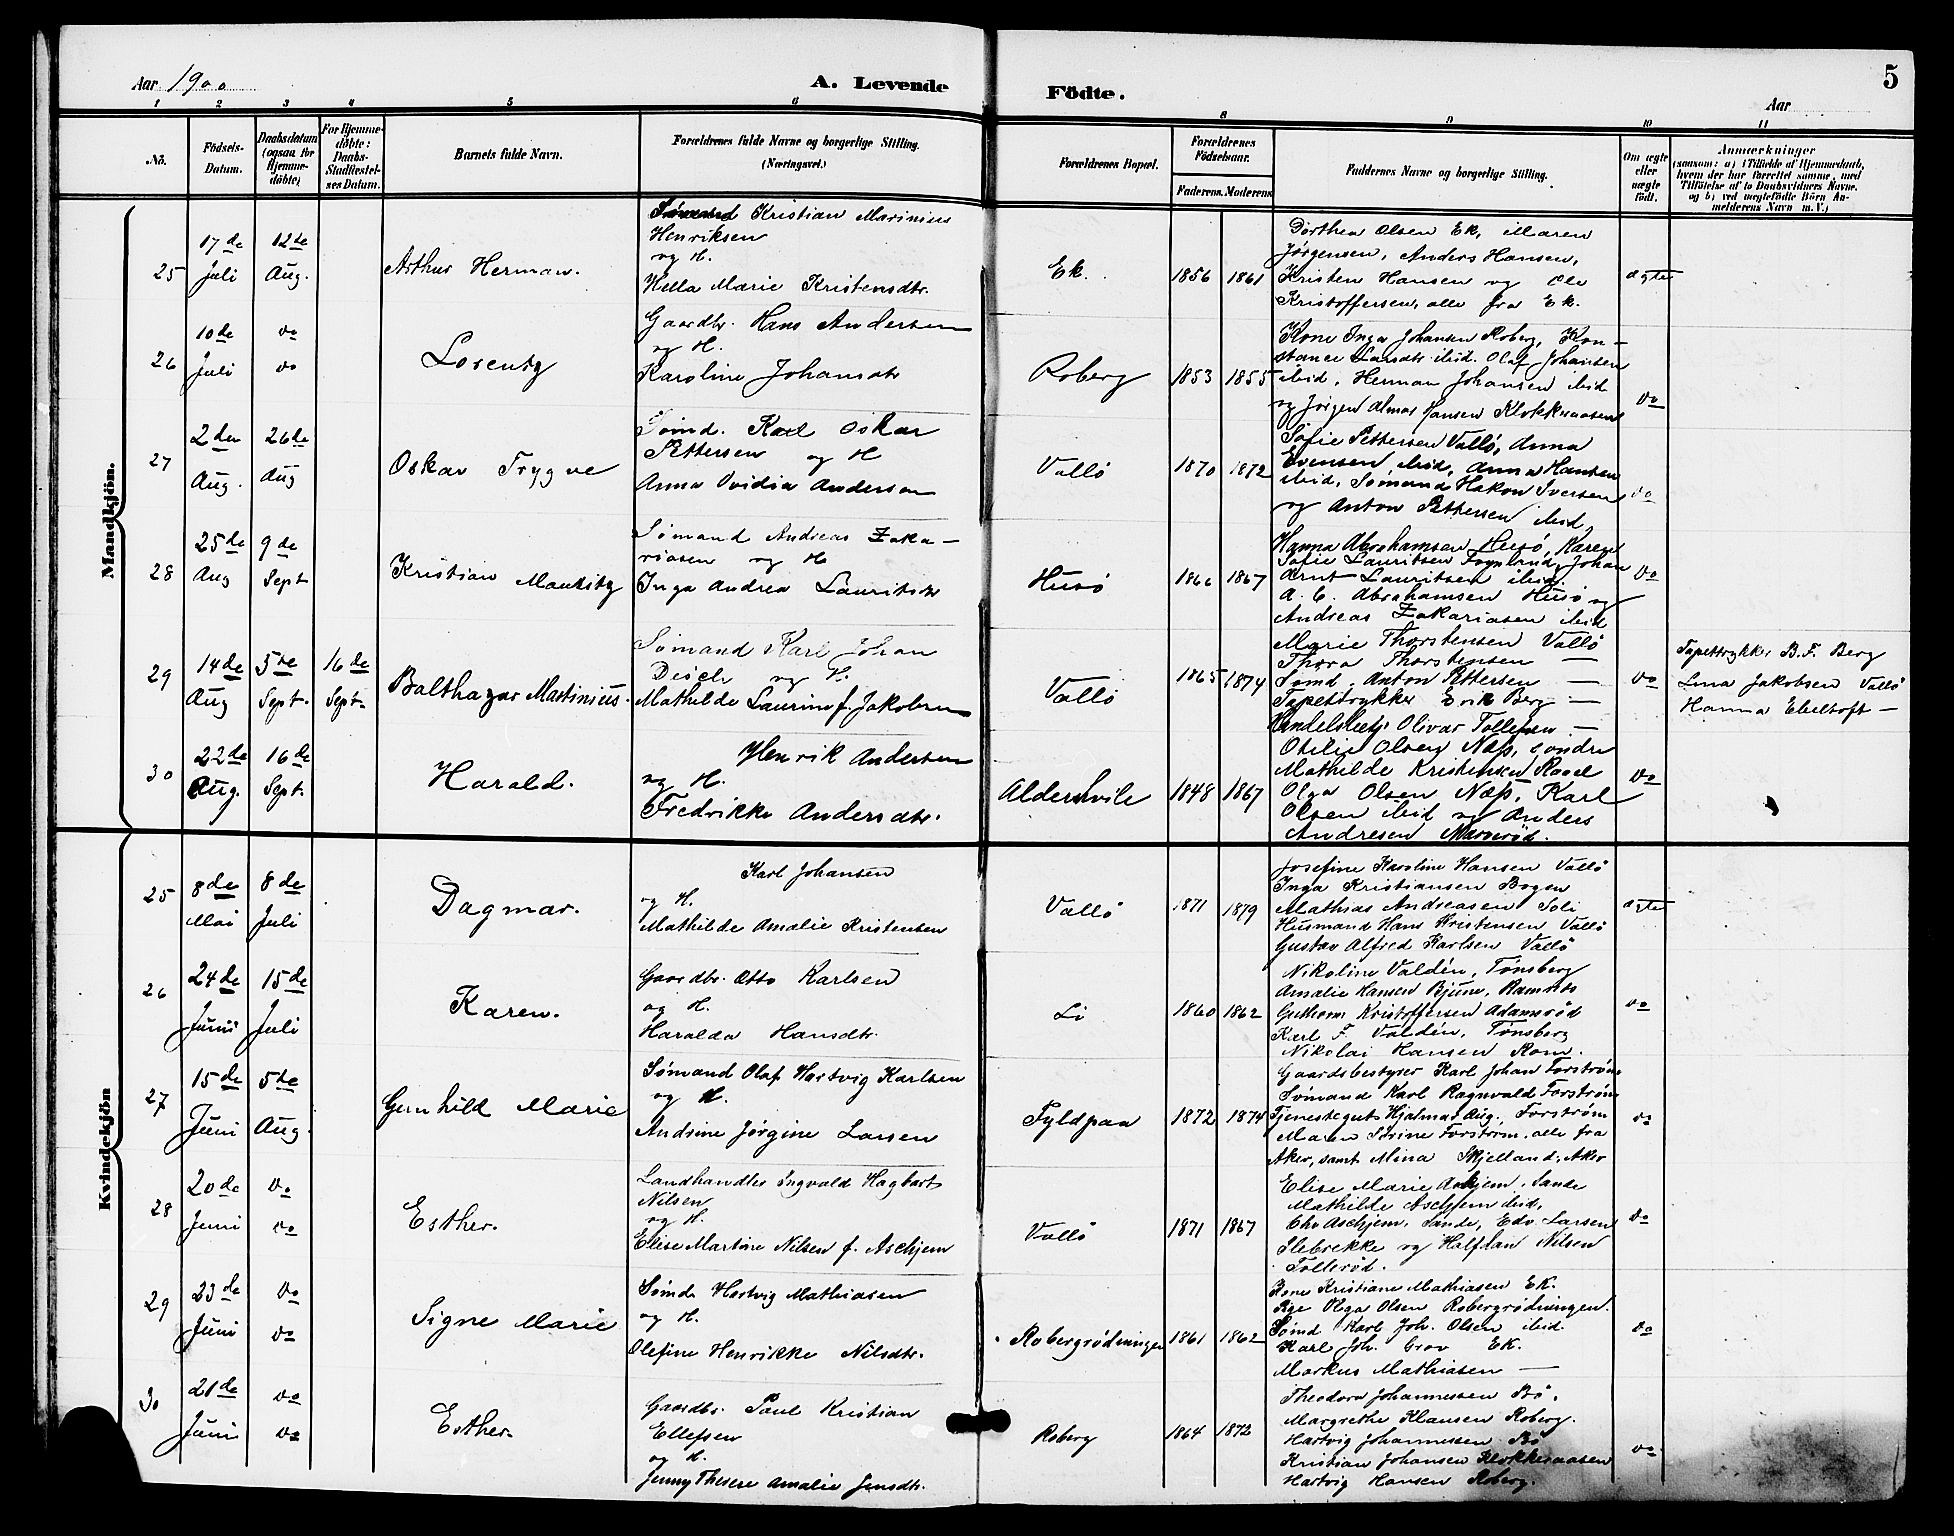 Aar 1900
A. Levende Födte.
5
Aar
1 2 3 4 5 6 8 9 10 11
No.
Födsels-Datum.
Daabsdatum (ogsaa for Hjemme-döbte)
For Hjemme-döbte: Daabs-Stadfæstel-ses Datum.
Barnets fulde Navn.
Forældrenes fulde Navne og borgerlige Stilling. (Næringsvei.)
Forældrenes Bopæl.
Forældrenes Födselsaar.
Faderens. Moderens.
Faddernes Navne og borgerlige Stilling.
Om ægte eller uægte födt.
Anmærkninger
(saasom: a) i Tilfælde af Hjemmedaab, hvem der har forrettet samme, med Tilföielse af to Daabsvidners Navne, og b) ved uægtefödte Börn An-melderens Navn m. V.)
Mandkjön.
25
17de Juli
12te Aug.
Arthur Herman.
Sømand Kristian Marinius
Henriksen
og H.
Hella Marie Kristensdtr.
Ek.
1856 1861
Dorthea Olsen Ek, Maren
Jørgensen, Anders Hansen,
Kristen Hansen og Ole
Kristoffersen, alle fra Ek.
ægte
26
10de Juli
do do
Lorentz
Gaardbr. Hans Andersen
og H.
Karoline Johansdtr
Roberg
1853 1855
Kone Inga Johansen Roberg, Kon-
stance Larsdtr ibid. Olaf Johansen
ibid, Herman Johansen ibid
og Jørgen Almar Hansen Klokkeraasen
do
27
2den Aug.
26de Aug
Oskar Trygve
Sømd. Karl Oskar
Pettersen og H
Anna Ovidia Anderson
Vallö
1870 1872
Sofie Pettersen Vallö, Anna
Evensen ibid, Anna Hansen
ibid, Sømand Hakon Iversen
og Anton Pettersen ibid,
do
28
25de Aug
9de Sept
Kristian Mauritz
Sømand Andreas Zaka-
riasen og H
Inga Andrea Lauritsdtr
Husö
1866 1867
Hanna Abrahamsen Husö, Karen
Sofie Lauritsen Fognland, Johan
Arnt Lauritsen ibid.
A. C. Abrahamsen Husö og
Andreas Zakariasen ibid
do
29
14de Aug
5de Sept.
16de Sept.
Balthazar Martinius.
Sømand Karl Johan
Disch og H.
Mathilde Laurine f. Jakobsen
Vallö
1865 1874
Marie Thorstensen Vallö
Thora Thorstensen —
Sømd. Anton Pettersen —
Tapettrykker Erik Berg —
Handelsbetj. Olivar Tollefsen —
do
Tapettrykker B. F. Berg
Lina Jakobsen Vallö
Hanna Ebeltoft —
30
22de Aug.
16de Sept.
Harald.
Henrik Andersen
og H.
Fredrikke Andersdtr.
Aldershvile
1848 1867
Otilie Olsen Næs, søndre
Mathilde Kristensen Roael
Olga Olsen Næs, Karl
Olsen ibid og Anders
Andresen Marerød.
do
Kvindekjön
25
8de Mai
8de Juli
Dagmar.
Karl Johansen
og H.
Mathilde Amalie Kristensen
Vallö
1871 1879
Josefine Karoline Hansen Vallö
Inga Kristiansen Bogen
Mathias Andreasen Soli
Husmand Hans Kristensen Vallö
Gustav Alfred Karlsen Vallö
ægte
26
24de Juni
15de Juli
Karen.
Gaardbr. Otto Karlsen
og H.
Haralda Hansdtr.
Li
1860 1862
Nikoline Valdén, Tønsberg
Amalie Hansen Bjune, Ramnes
Guttorm Kristoffersen Adamsrød
Karl F. Valdén, Tønsberg
Nikolai Hansen Rom.
do
27
15de Juni
5de Aug.
Gunhild Marie
Sømand Olaf Hartvig Karlsen
og H.
Andrine Jørgine Larsen
Fyldpaa
1872 1874
Gaardsbestyrer Karl Johan Forstrøm
Sømand Karl Ragnvald Forstrøm
Tjenestegut Hjalmar Aug. Forstrøm
Maren Sørine Forstrøm, alle fra
Aker, samt Mina Skjelland, Aker
do
28
20de Juni
do do
Esther.
Landhandler Ingvald Hagbart
Nilsen
og H.
Elise Martine Nilsen f. Aschjem
Vallö
1871 1867
Elise Marie Askjem, Sande
Mathilde Aschjem ibid,
Chr Aschjem, Sande, Edv. Larsen
Slebrekke og Halfdan Nilsen
Tollerød.
do
29
23de Juni
do do
Signe Marie
Sømd. Hartvig Mathiasen
og H.
Olefine Henrikke Nilsdtr.
Robergrødningen
1861 1862
Kone Kristiane Mathiasen Ek.
Pige Olga Olsen Robergrødningen.
Sømd Karl Joh. Olsen ibid.
Karl Joh. Crov Ek.
Markus Mathiasen —
do
30
21de Juni
do do
Esther.
Gaardbr. Paul Kristian
Ellefsen
og H.
Jenny Therese Amalie Jensdtr.
Roberg
1864 1872
Theodora Johannessen Bö,
Margrethe Klausen Roberg.
Hartvig Johannessen Bö
Kristian Johansen Klokkeraasen
Hartvig Hansen Roberg.
do